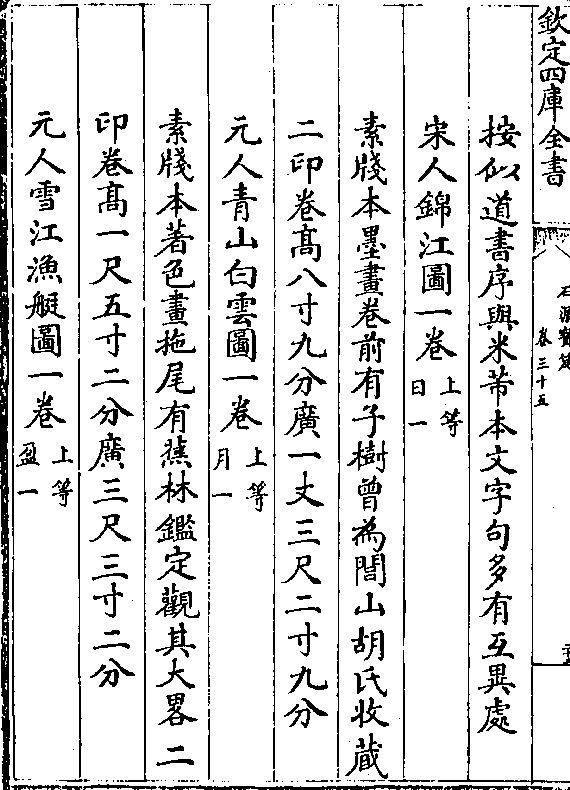 欽定四庫全書
卷三十五
按似道書序與米芾本文字句多有互異處
宋人錦江圖一卷 上等 日一
素牋本墨畫卷前有子樹曾為閭山胡氏收藏
二印卷高八寸九分廣一丈三尺二寸九分
元人青山白雲圖一卷 上等 月一
素牋本著色畫拖尾有蕉林鑑定觀其大畧二
印卷高一尺五寸二分廣三尺三寸二分
元人雪江漁艇圖一卷 上等 盈一